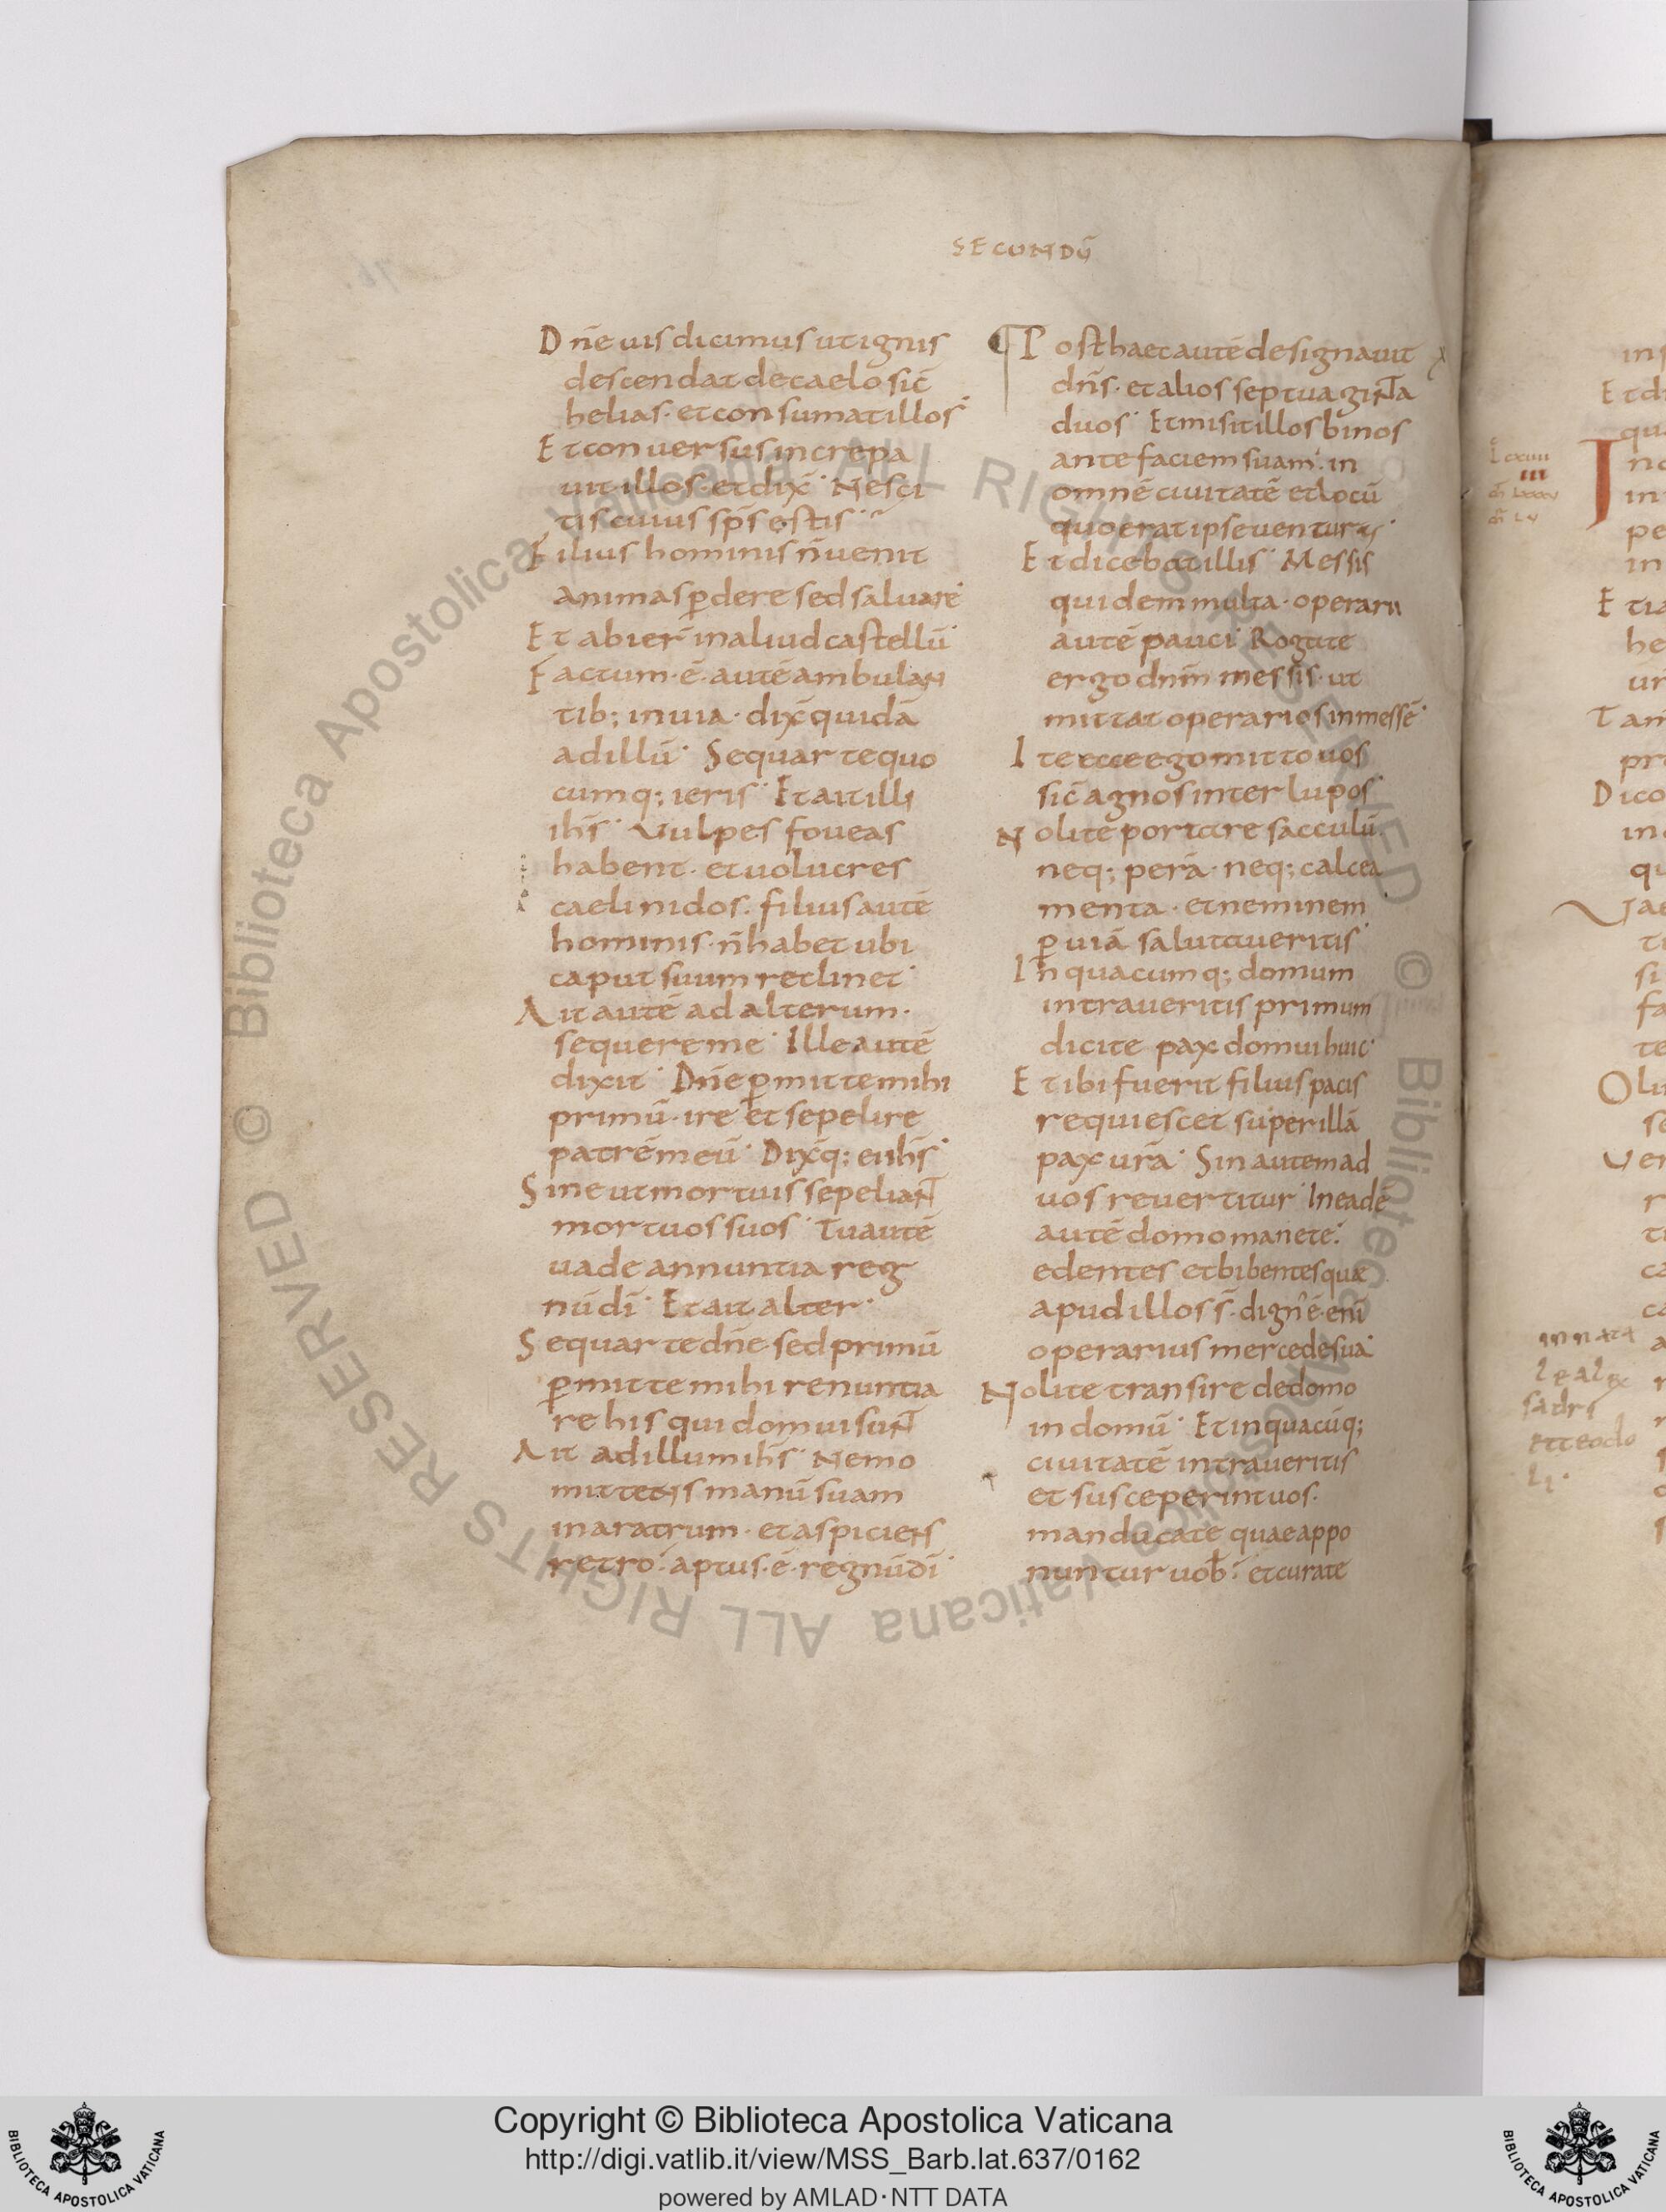 SECUNDŪ
Dn̄e uis dicimus ut ignis
descendat de caelo sic̄
helias · et consumat illos
Et conversus increpa
uit illos · et dix̄ · Nesci
tis cuius sp̄s estis
Filius hominis n̄ uenit
animas ꝑdere sed saluare
Et abier̄ in aliud castellū
Factum · ē · autē ambulan
tib; in uia · dix̄ quidā
ad illū · Sequar te quo
cumq; ieris · Et ait illi
ih̄s · Vulpes foueas
habent · et uolucres
caeli nidos · filius autē
hominis · n̄ habet ubi
caput suum reclinet
Ait autē ad alterum ·
sequere me · Ille autē
dixit · Dn̄e ꝑmitte mihi
primū · ire et sepelire
patrē meū · Dix̄q; ei ih̄s
Sine ut mortuis sepeliant
mortuos suos · Tu autē
uade annuntia reg
nū dī · Et ait alter ·
Sequar te dn̄e sed primū
ꝑmitte mihi renuntia
re his qui domui sunt
Ait ad illum ih̄s · Nemo
mittens manū suam
in aratrum · et aspiciens
retro · aptus · ē · regnū dī
Post haec autē designauit
dn̄s · et alios septuaginta
duos · Et misit illos binos
ante faciem suam · in
omnē ciuitatē et locū
quo erat ipse uenturus
Et dicebat illis · Messis
quidem multa · operarii
autē pauci · Rogate
ergo dnm̄ messis · ut
mittat operarios in messē
Ite ecce ego mitto uos
sic̄ agnos inter lupos
Nolite portare sacculū
neq; perā · neq; calcea
menta · et neminem
ꝑ uiā salutaueritis
In quacumq; domum
intraueritis primum
dicite pax domui huic
Et ibi fuerit filius pacis
requiescet super illā
pax ur̄a · Sin autem ad
uos reuertitur · In eadē
autē domo manete ·
edentes et bibentes quae
apud illos s̄ · dign' ē · enī
operarius mercede sua
Nolite transire de domo
in domū · Et in quacūq;
ciuitatē intraueritis
et susceperint uos ·
manducate quae appo
nuntur uob̄ · et curate
Copyright © Biblioteca Apostolica Vaticana
http://digi.vatlib.it/view/MSS_Barb.lat.637/0162
powered by AMLAD·NTT DATA